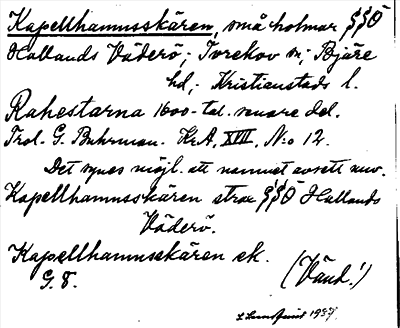 Kapellhamnsskären, små holmar §§Ö
Hallands Väderö; Torekov sn; Bjäre
hd; Kristianstads l.
Rahestarna 1600-tal. senare del.
Trol. G. Buhrman. KrA, XVII, N:o 12.
Det synes möjl. att namnet avsett nuv.
Kapellhamnsskären strax §§Ö Hallands
Väderö.
Kapellhamnsskären ek.
G. 8. (Vänd!)
L Lundquist 1937.